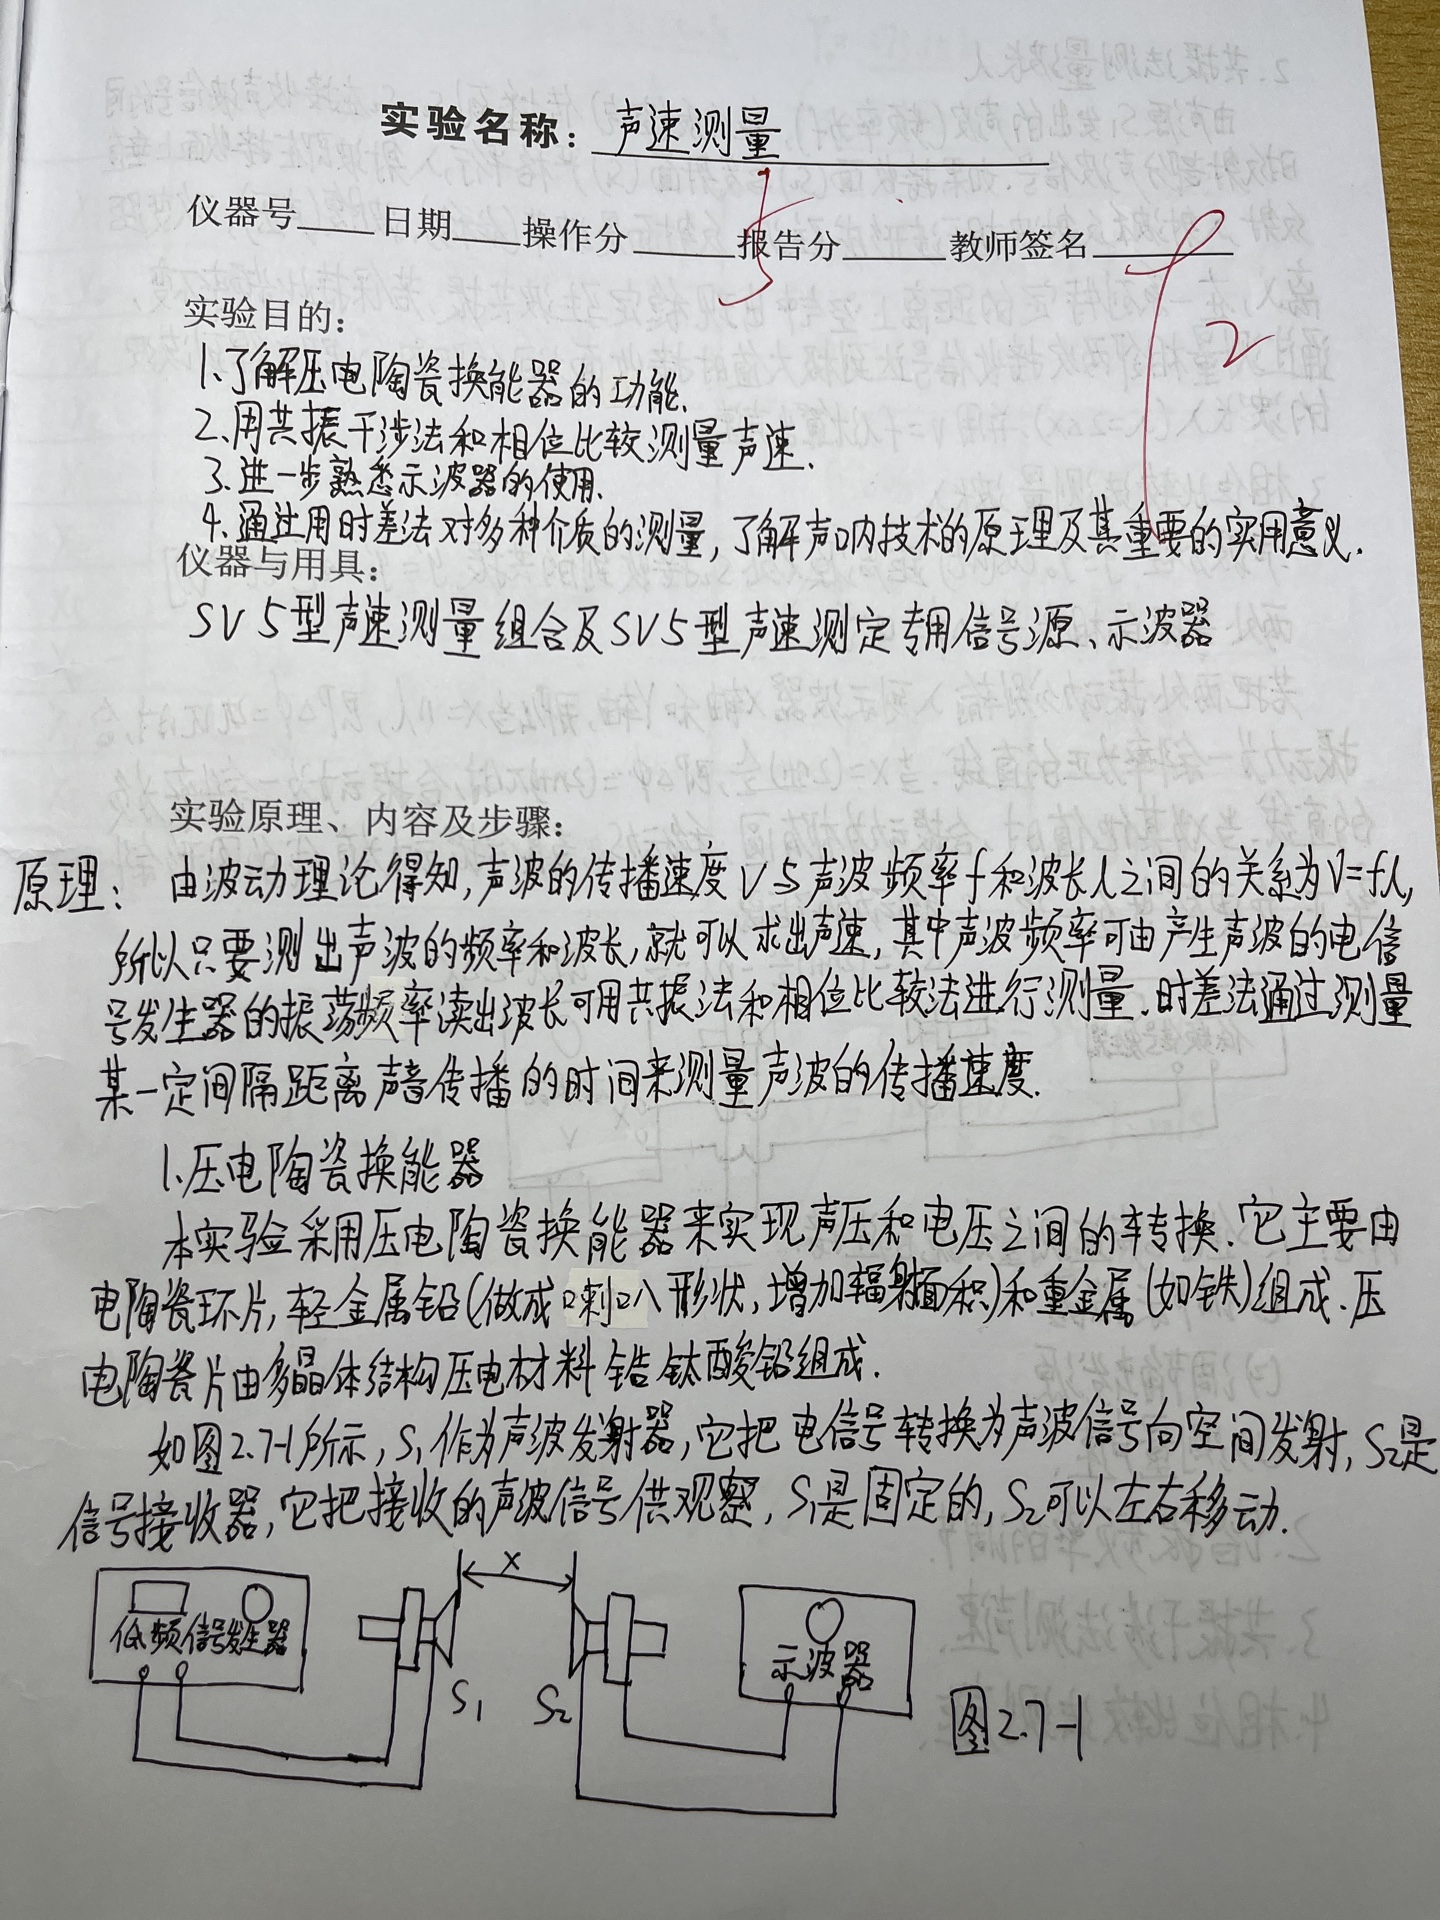 实验名称：声速测量
仪器号____日期____操作分____报告分____教师签名____
实验目的：
1.了解压电陶瓷换能器的功能.
2.用共振干涉法和相位比较测量声速.
3.进一步熟悉示波器的使用.
4.通过用时差法对多种介质的测量,了解声呐技术的原理及其重要的实用意义.
仪器与用具：
SV5型声速测量组合及SV5型声速测定专用信号源、示波器
实验原理、内容及步骤：
原理：由波动理论得知,声波的传播速度V与声波频率f和波长λ之间的关系为V=fλ,
所以只要测出声波的频率和波长,就可以求出声速,其中声波频率可由产生声波的电信
号发生器的振荡频率读出波长可用共振法和相位比较法进行测量.时差法通过测量
某一定间隔距离声音传播的时间来测量声波的传播速度.
1.压电陶瓷换能器
本实验采用压电陶瓷换能器来实现声压和电压之间的转换.它主要由
电陶瓷环片,轻金属铅(做成喇叭形状,增加辐射面积)和重金属(如铁)组成.压
电陶瓷片由多晶体结构压电材料锆钛酸铅组成.
如图2.7-1所示,S₁作为声波发射器,它把电信号转换为声波信号向空间发射,S₂是
信号接收器,它把接收的声波信号供观察,S₁是固定的,S₂可以左右移动.
x
低频信号发生器
示波器
S₁ S₂
图2.7-1